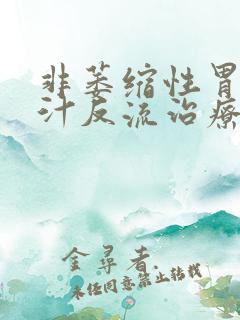 非萎缩性胃
汁反流治疗
金寻者.
未经同意禁止转载